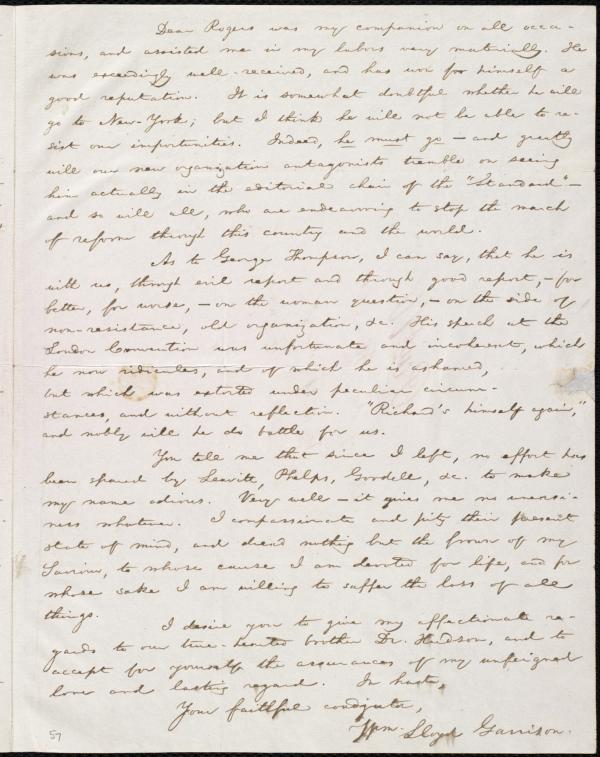 Dear Rogers was my companion on all occa-
sions, and assisted me in my labors very materially. He
was exceedingly well-received, and has won for himself a
good reputation. It is somewhat doubtful whether he will
go to New-York; but I think he will not be able to re-
sist our importunities. Indeed, he must go — and greatly
will our new organization antagonists tremble on seeing
him actually in the editorial chair of the "Standard" —
and so will all, who are endeavoring to stop the march
of reform through this country and the world.
As to George Thompson, I can say, that he is
with us, through evil report and through good report, — for
better, for worse, — on the woman question, — on the side of
non-resistance, old organization, &c. His speech at the
London Convention was unfortunate and incoherent, which
he now ridicules, and of which he is ashamed,
but which was extorted under peculiar circum-
stances, and without reflection. "Richard's himself again,"
and nobly will he do battle for us.
You tell me that since I left, no effort has
been spared by Leavitt, Phelps, Goodell, &c. to make
my name odious. Very well — it gives me no uneasi-
ness whatever. I compassionate and pity their present
state of mind, and dread nothing but the frown of my
Saviour, to whose cause I am devoted for life, and for
whose sake I am willing to suffer the loss of all
things.
I desire you to give my affectionate re-
gards to our true-hearted brother Dr. Hudson, and to
accept for yourself the assurances of my unfeigned
love and lasting regard. In haste,
Your faithful coadjutor,
Wm. Lloyd Garrison.
57